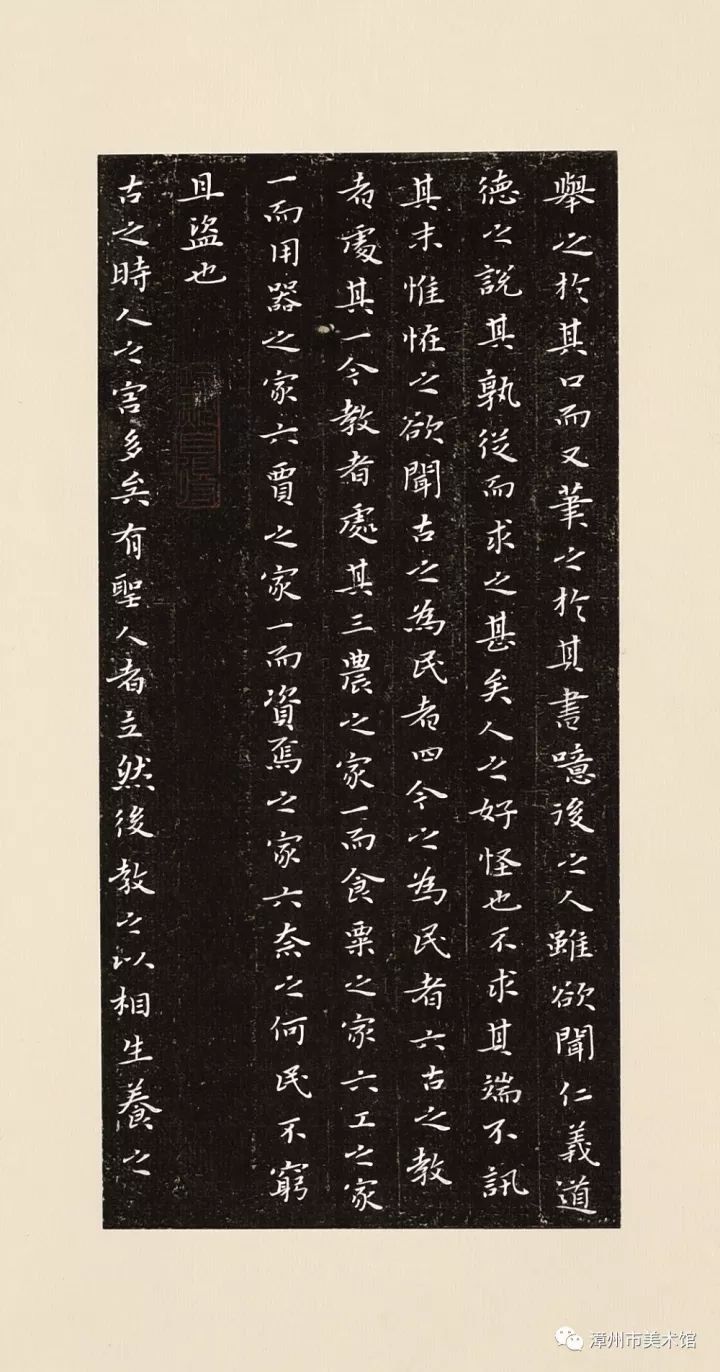 舉之於其口而又筆之於其書噫後之人雖欲聞仁義道
德之說其孰從而求之甚矣人之好怪也不求其端不訊
其末惟怪之欲聞古之為民者四今之為民者六古之教
者處其一今教者處其三農之家一而食粟之家六工之家
一而用器之家六賈之家一而資焉之家六奈之何民不窮
且盜也
古之時人之害多矣有聖人者立然後教之以相生養之
漳州市美术馆